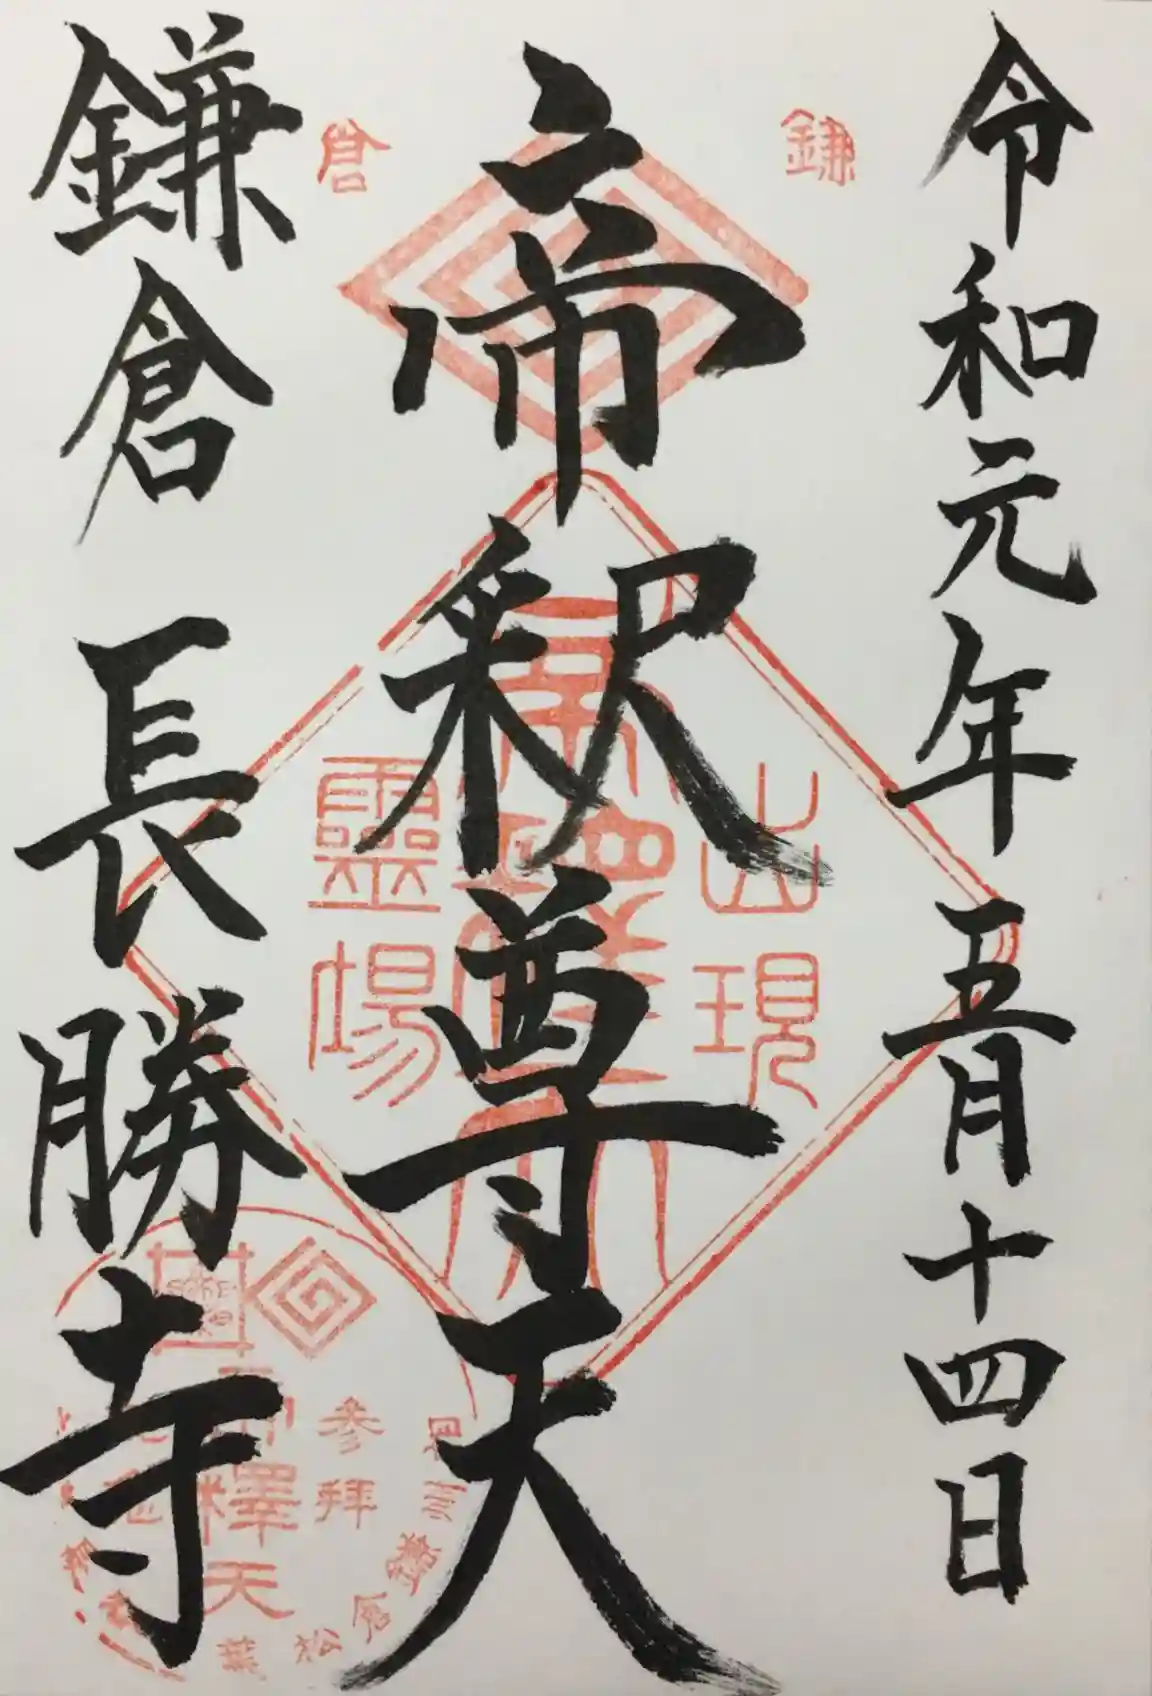 令和元年五月十四日
鎌倉
帝釈尊天
出現
帝釋天
靈場
鎌倉 長勝寺
参拝
帝釋天